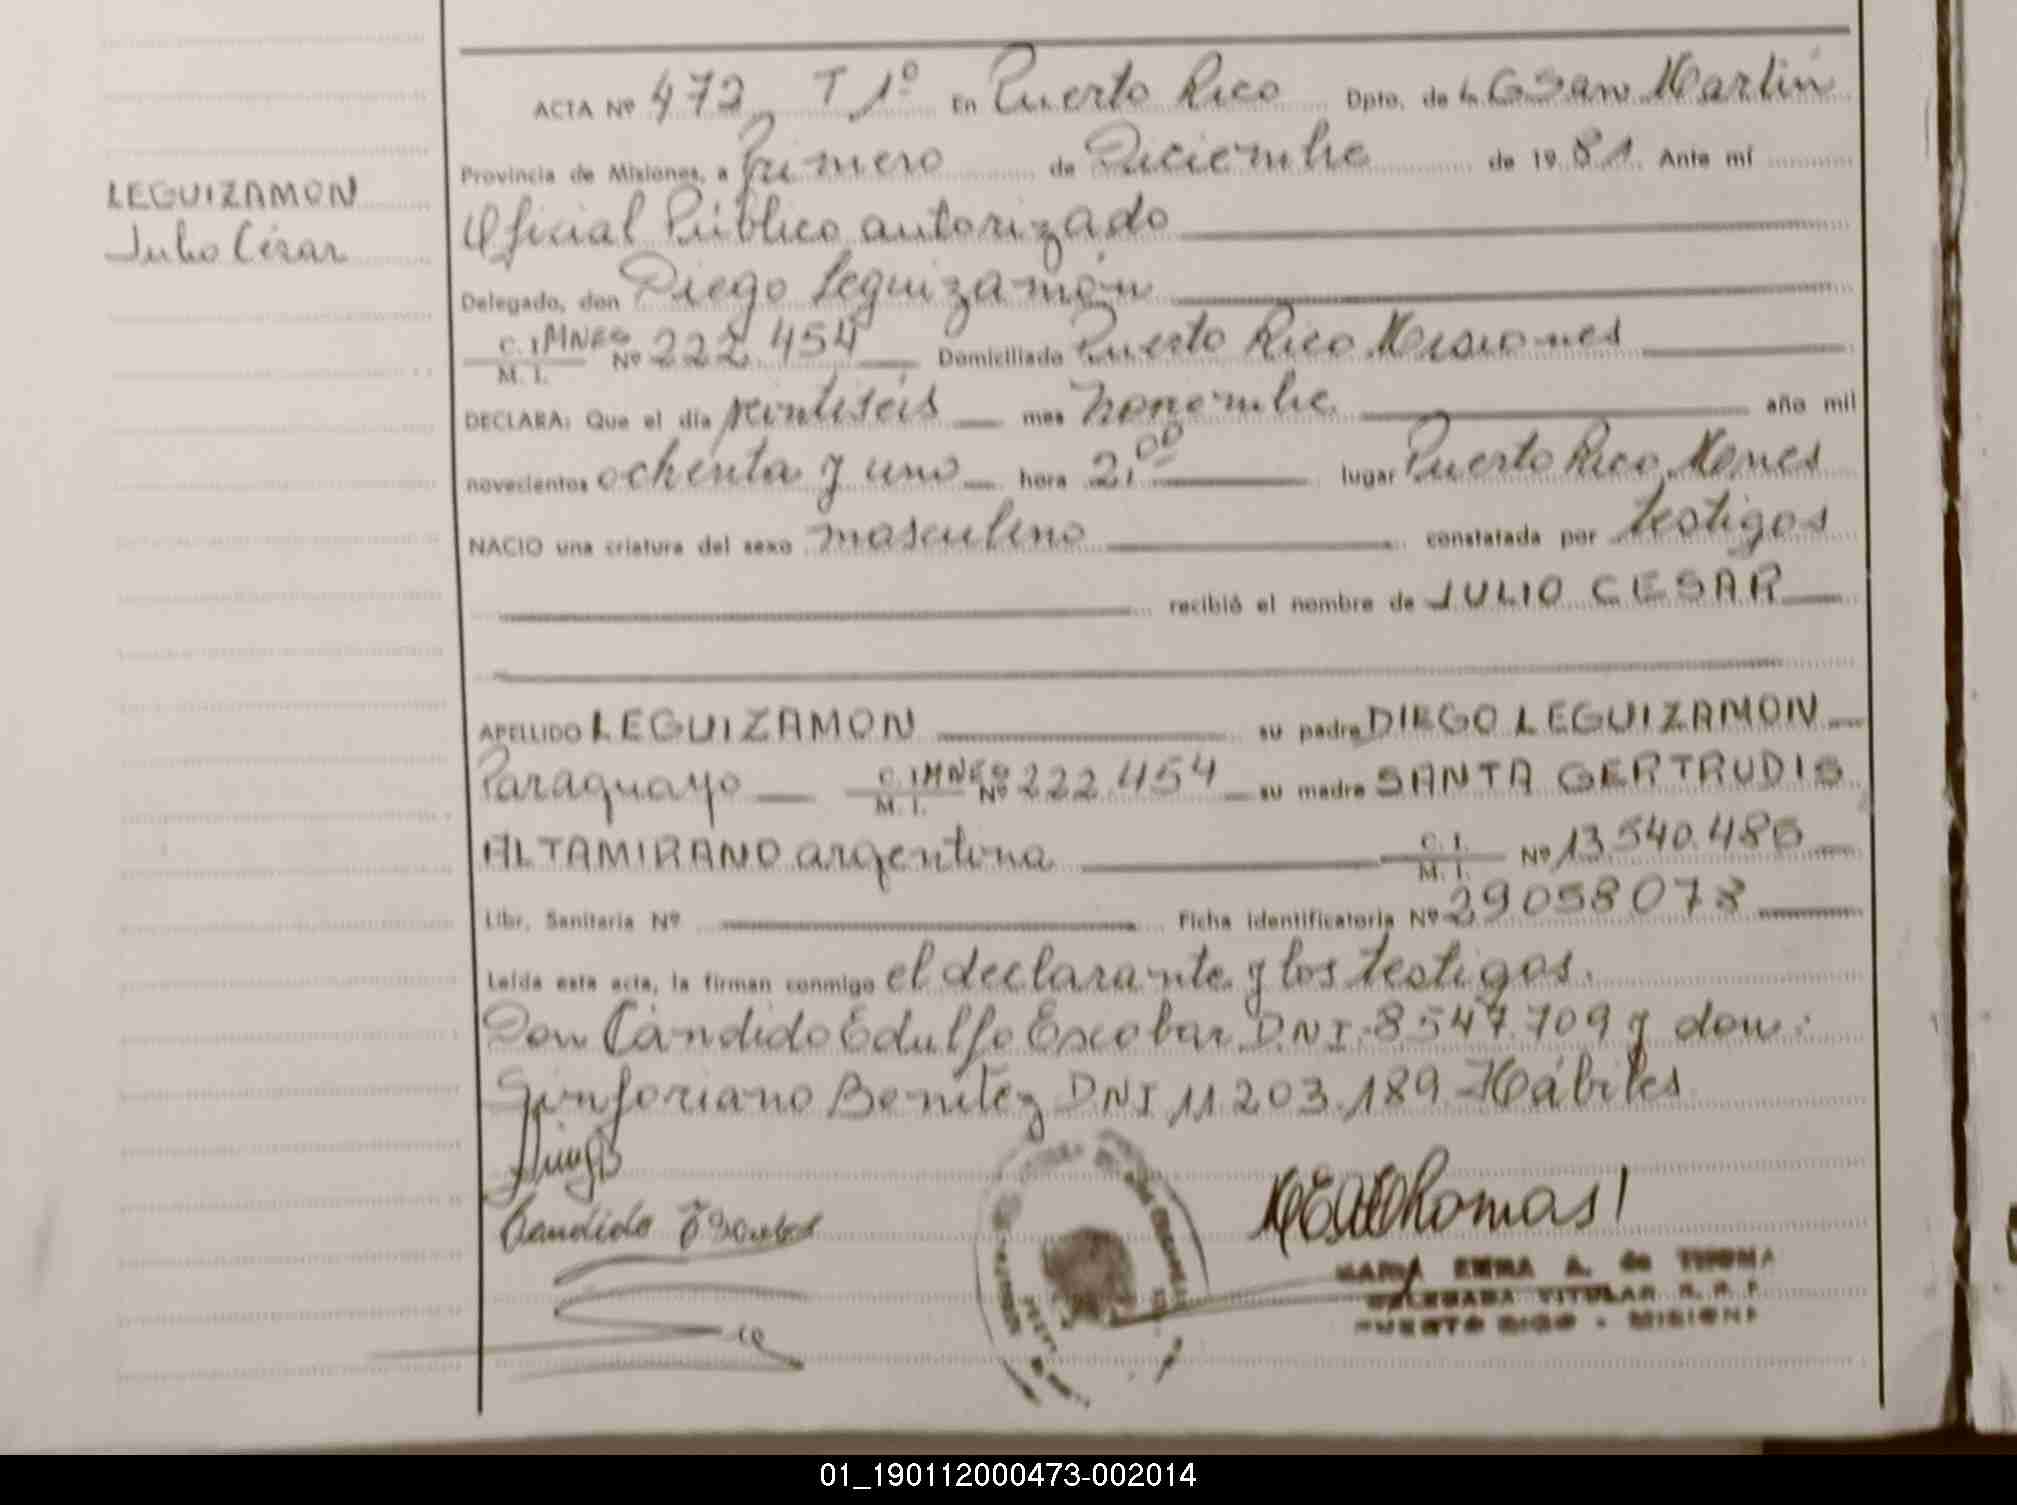 ACTA Nº 472 T 1º En Puerto Rico Dpto. de L. G San Martín
Provincia de Misiones, a Primero de Diciembre de 1981 Ante mí
LEGUIZAMON
Julio César
Oficial Público autorizado
Delegado, don Diego Leguizamón
C. I. MNES Nº 222 454 Domiciliado Puerto Rico Misiones
M. I.
DECLARA: Que el día veintiséis mes noviembre año mil
novecientos ochenta y uno hora 21 00 lugar Puerto Rico Mones
NACIO una criatura del sexo masculino constatada por testigos
recibió el nombre de JULIO CESAR
APELLIDO LEGUIZAMON su padre DIEGO LEGUIZAMON
Paraguayo C. I. MNES Nº 222 454 su madre SANTA GERTRUDIS
M. I.
ALTAMIRANO argentina C. I. Nº 13 540.486
M. I.
Libr. Sanitaria Nº Ficha Identificatoria Nº 29058078
Leída esta acta, la firman conmigo el declarante y los testigos.
Don Cándido Edulfo Escobar D.N.I. 8547.709 y don:
Sinforiano Benítez DNI 11 203.189. Hábiles
Candido Escobar
MARIA EMMA A. de THOMA
DELEGADA TITULAR R. P.
PUERTO RICO - MISIONE
01_190112000473-002014